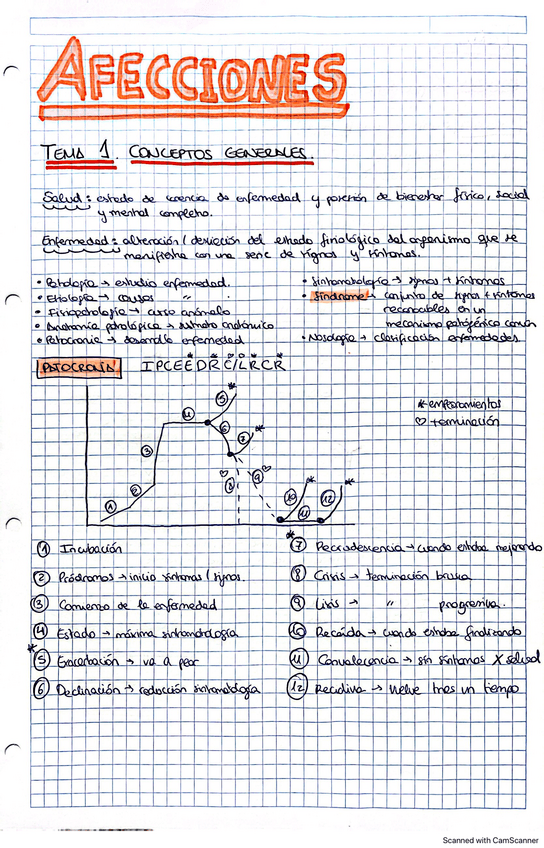 AFECCIONES
TEMA 1. CONCEPTOS GENERALES.
Salud: estado de ausencia de enfermedad y posesión de bienestar físico, social
y mental completo.
Enfermedad: alteración / desviación del estado fisiológico del organismo que se
manifiesta con una serie de signos y síntomas.
• Patología → estudio enfermedad.
• Etiología → causas " .
• Fisiopatología → curso anómalo
• Anatomía patológica → sustrato anatómico
• Patocronia → desarrollo enfermedad
• Sintomatología → signos + síntomas
• Síndrome → conjunto de signos + síntomas
reconocibles en un
mecanismo patogénico común
• Nosología → clasificación enfermedades.
PATOCRONIA IPCEE*DR*C♡/L♡R*CR*
* empeoramientos
♡ terminación
1 2 3 4 5 * 6 7 * 8 ♡ 9 ♡ 10 * 11 12 *
① Incubación
② Pródromos → inicio síntomas / signos.
③ Comienzo de la enfermedad
④ Estado → máxima sintomatología
* ⑤ Exacerbación → va a peor
⑥ Declinación → reducción sintomatología
* ⑦ Recrudescencia → cuando estaba mejorando
⑧ Crisis → terminación brusca
⑨ Lisis → " progresiva.
⑩ Recaída → cuando estaba finalizando
⑪ Convalecencia → sin síntomas X salud
⑫ Recidiva → vuelve tras un tiempo
Scanned with CamScanner